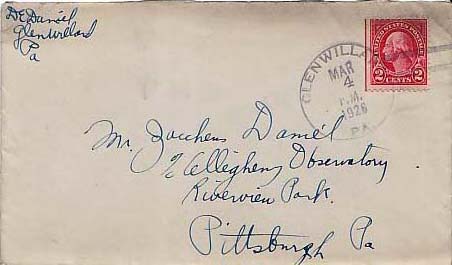 DE Daniel
Glenwillard
Pa
UNITED STATES POSTAGE
2 CENTS 2
GLENWILLA
MAR
4
P.M.
1926
PA.
Mr. Zacchens Daniel
℅ Allegheny Observatory
Riverview Park.
Pittsburgh Pa